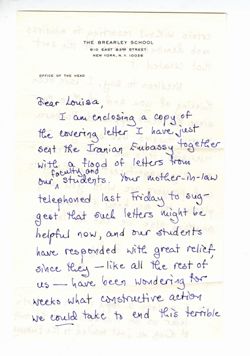 THE BREARLEY SCHOOL
610 EAST 83RD STREET
NEW YORK, N.Y. 10028
OFFICE OF THE HEAD
Dear Louisa,
I am enclosing a copy of
the covering letter I have just
sent the Iranian Embassy together
with a flood of letters from
our faculty and students. Your mother-in-law
telephoned last Friday to sug-
gest that such letters might be
helpful now, and our students
have responded with great relief,
since they — like all the rest of
us — have been wondering for
weeks what constructive action
we could take to end this terrible